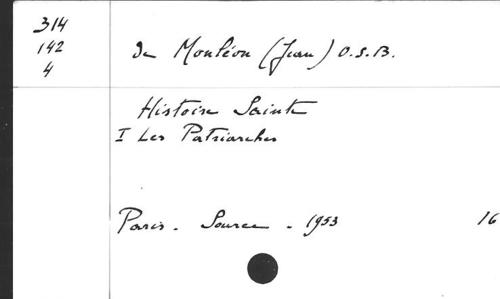 314
142
4
de Monléon (Jean) O.S.B.
Histoire Sainte
I Les Patriarches
Paris. Source. 1953
16